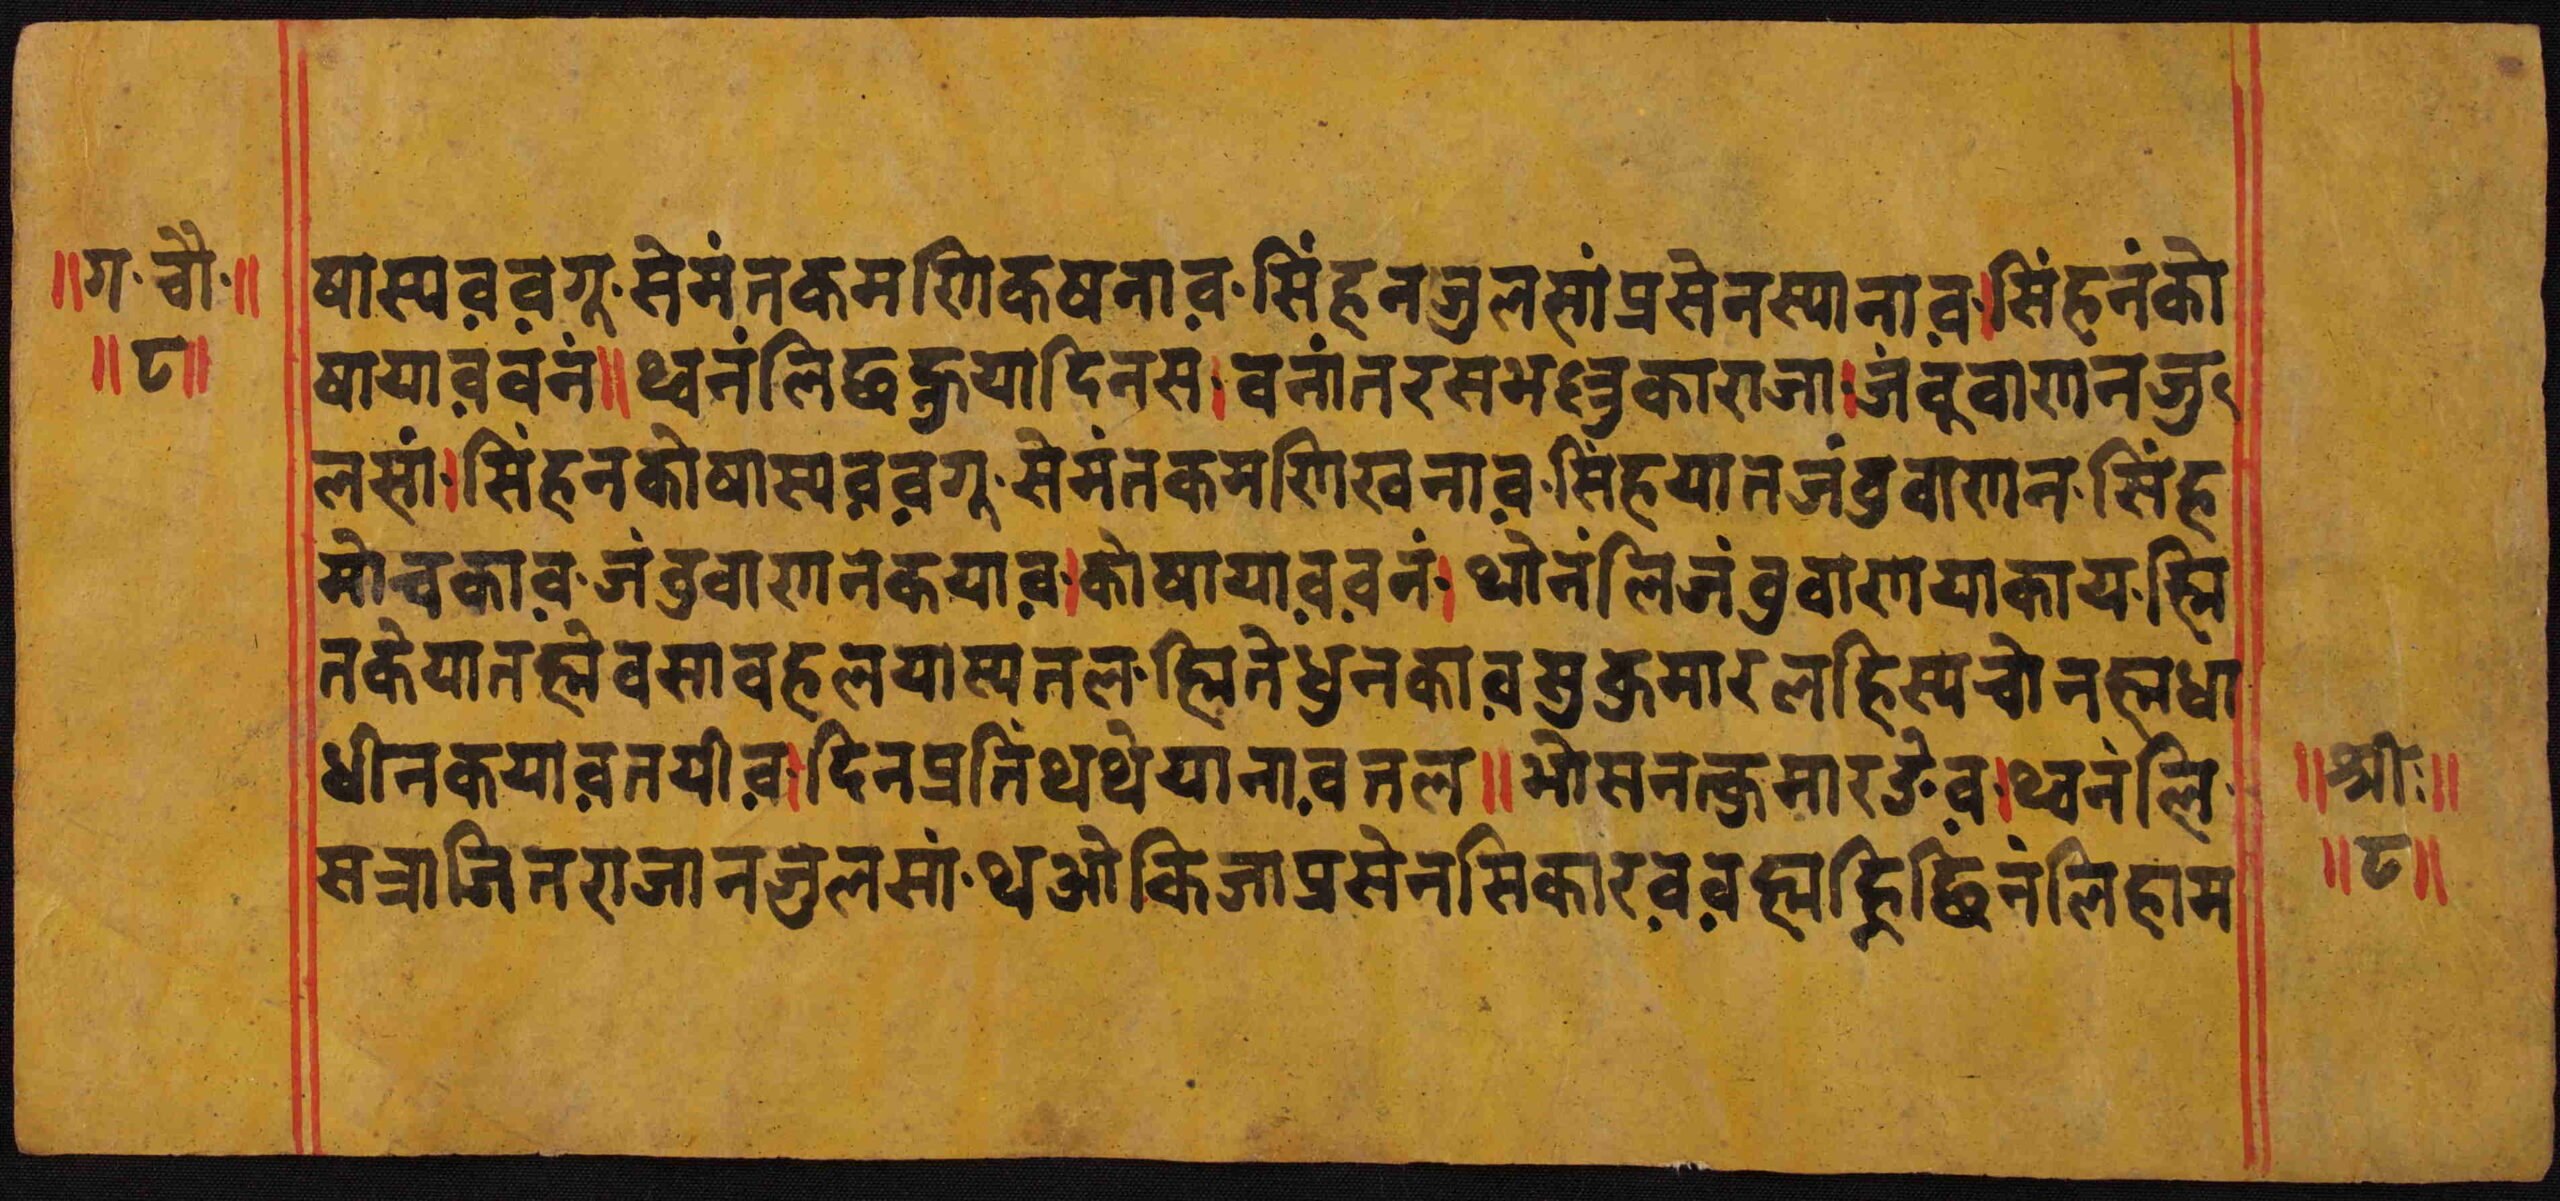 ॥ग·चौ·॥
॥८॥
षास्यव़व़गू·सेमंतकमणिकषनाव़·सिंहनजुलसांप्रसेनस्यानाव़·।सिंहनंको
षायाव़वनं॥थ्वनंलिछह्नुयादिनस।वनांतरसभल्लुकाराजा।जंवूवाणनजु
लसां·।सिंहनकोषास्यव़व़गू·सेमंतकमणिखनाव़·सिंहयातजंवुवाणन·सिंह
मोचकाव़·जंवुवाणनकयाव़·।कोषायाव़व़नं·।थोनंलिजंवुवाणयाकाय·ह्मि
तकेयातह्मेवसावहलयास्यतल·ह्मितेधुनकाव़सुकुमारलहिस्यचोनह्मधा
धीनकयाव़तयीव़·।दिनप्रतिंथथेयानाव़तल॥भोसनत्कुमारङेव़·।थ्वनंलि·
सत्राजितराजानजुलसां·थओकिजाप्रसेनसिकारव़व़ह्मह्निछिंनंलिहाम
॥श्रीः॥
॥८॥